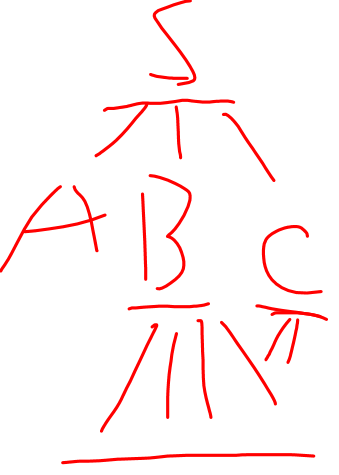 S
A B C